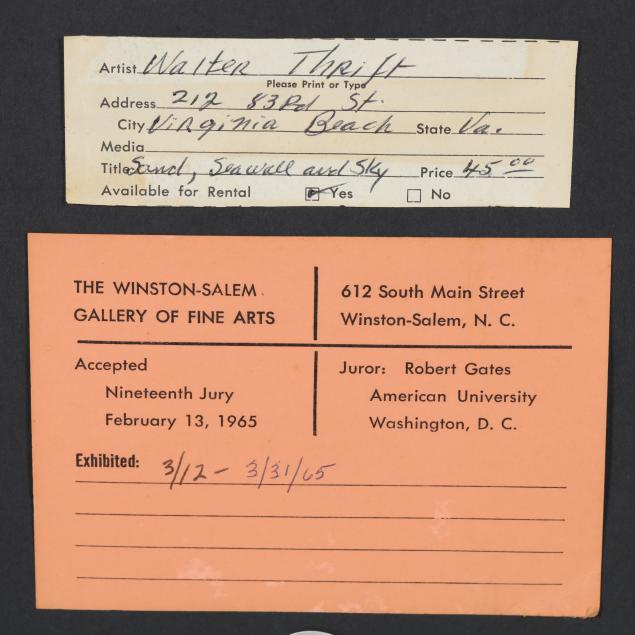 Artist Walter Thrift
Please Print or Type
Address 212 83rd St.
City Virginia Beach State Va.
Media
Title Sand, Seawall and Sky Price 45 00
Available for Rental Yes No
THE WINSTON-SALEM
GALLERY OF FINE ARTS
612 South Main Street
Winston-Salem, N. C.
Accepted
Nineteenth Jury
February 13, 1965
Juror: Robert Gates
American University
Washington, D. C.
Exhibited: 3/12 - 3/31/65